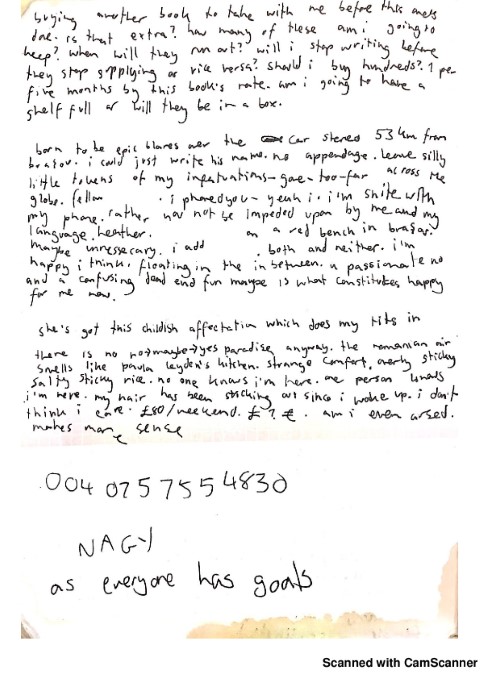 buying another book to take with me before this ones
done. is that extra? how many of these am i going to
keep? when will they run out? will i stop writing before
they stop supplying or vice versa? should i buy hundreds? 1 per
five months by this book's rate. am i going to have a
shelf full or will they be in a box.
born to be epic blares over the car stereo 53 km from
brasov. i could just write his name. no appendage. leave silly
little tokens of my infatuations - gone - too - far across the
globe. fellow . i phoned you - yeah i. i'm shite with
my phone. rather you not be impeded upon by me and my
language. heather. on a red bench in brasov.
maybe unnessecary. i add . both and neither. i'm
happy i think. floating in the in between. a passionate no
and a confusing dead end fun maybe is what constitutes happy
for me now.
she's got this childish affectation which does my tits in
there is no no→maybe→yes paradise anyway. the romanian air
smells like paula leyden's kitchen. strange comfort. overly sticky
salty sticky rice. no one knows i'm here. one person knows
i'm here. my hair has been sticking out since i woke up. i don't
think i care. £80/weekend. £? €. am i even arsed.
makes more sense
004 0757554830
NAGY
as everyone has goals
Scanned with CamScanner